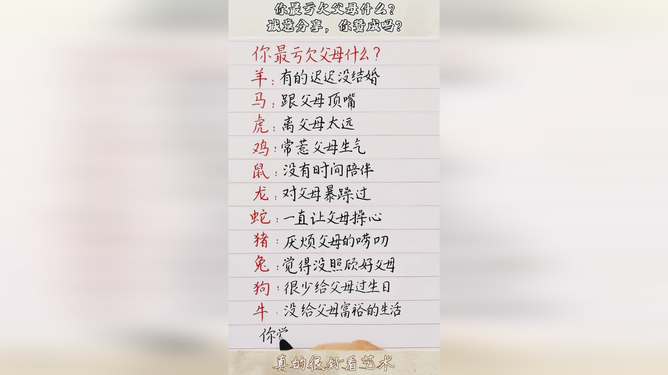 你最亏欠父母什么?
诚意分享，你赞成吗?
你最亏欠父母什么?
羊:有的迟迟没结婚
马:跟父母顶嘴
虎:离父母太远
鸡:常惹父母生气
鼠:没有时间陪伴
龙:对父母暴躁过
蛇:一直让父母操心
猪:厌烦父母的唠叨
兔:觉得没照顾好父母
狗:很少给父母过生日
牛:没给父母富裕的生活
你
真的很好看艺术